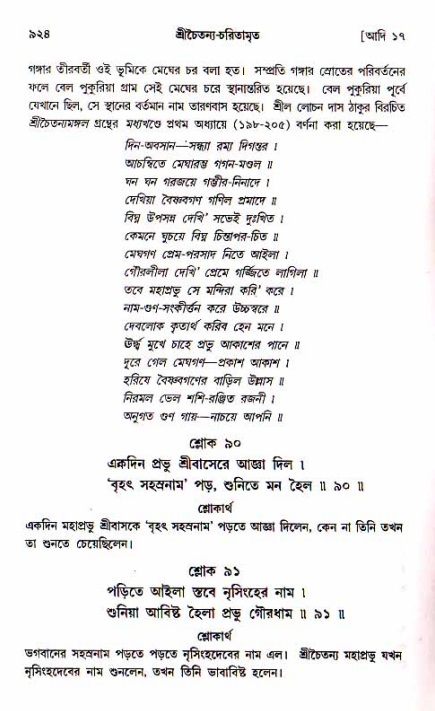 ৯২৪ শ্রীচৈতন্য-চরিতামৃত [আদি ১৭
গঙ্গার তীরবর্তী ওই ভূমিকে মেঘের চর বলা হত। সম্প্রতি গঙ্গার স্রোতের পরিবর্তনের
ফলে বেল পুকুরিয়া গ্রাম সেই মেঘের চরে স্থানান্তরিত হয়েছে। বেল পুকুরিয়া পূর্বে
যেখানে ছিল, সে স্থানের বর্তমান নাম তারণবাস হয়েছে। শ্রীল লোচন দাস ঠাকুর বিরচিত
শ্রীচৈতন্যমঙ্গল গ্রন্থের মধ্যখণ্ডে প্রথম অধ্যায়ে (১৯৮-২০৫) বর্ণনা করা হয়েছে—
দিন-অবসান—সন্ধ্যা রম্য দিগন্তর ।
আচম্বিতে মেঘারম্ভ গগন-মণ্ডল ॥
ঘন ঘন গরজয়ে গম্ভীর-নিনাদে ।
দেখিয়া বৈষ্ণবগণ গণিল প্রমাদে ॥
বিঘ্ন উপসন্ন দেখি' সভেই দুঃখিত ।
কেমনে ঘুচয়ে বিঘ্ন চিন্তাপর-চিত ॥
মেঘগণ প্রেম-পরসাদ নিতে আইলা ।
গৌরলীলা দেখি' প্রেমে গর্জ্জিতে লাগিলা ॥
তবে মহাপ্রভু সে মন্দিরা করি' করে ।
নাম-গুণ-সংকীর্ত্তন করে উচ্চস্বরে ॥
দেবলোক কৃতার্থ করিব হেন মনে ।
ঊর্দ্ধ্ব মুখে চাহে প্রভু আকাশের পানে ॥
দূরে গেল মেঘগণ—প্রকাশ আকাশ ।
হরিষে বৈষ্ণবগণের বাড়িল উল্লাস ॥
নিরমল ভেল শশি-রঞ্জিত রজনী ।
অনুগত গুণ গায়—নাচয়ে আপনি ॥
শ্লোক ৯০
একদিন প্রভু শ্রীবাসেরে আজ্ঞা দিল ।
'বৃহৎ সহস্রনাম' পড়, শুনিতে মন হৈল ॥ ৯০ ॥
শ্লোকার্থ
একদিন মহাপ্রভু শ্রীবাসকে 'বৃহৎ সহস্রনাম' পড়তে আজ্ঞা দিলেন, কেন না তিনি তখন
তা শুনতে চেয়েছিলেন।
শ্লোক ৯১
পড়িতে আইলা স্তবে নৃসিংহের নাম ।
শুনিয়া আবিষ্ট হৈলা প্রভু গৌরধাম ॥ ৯১ ॥
শ্লোকার্থ
ভগবানের সহস্রনাম পড়তে পড়তে নৃসিংহদেবের নাম এল। শ্রীচৈতন্য মহাপ্রভু যখন
নৃসিংহদেবের নাম শুনলেন, তখন তিনি ভাবাবিষ্ট হলেন।